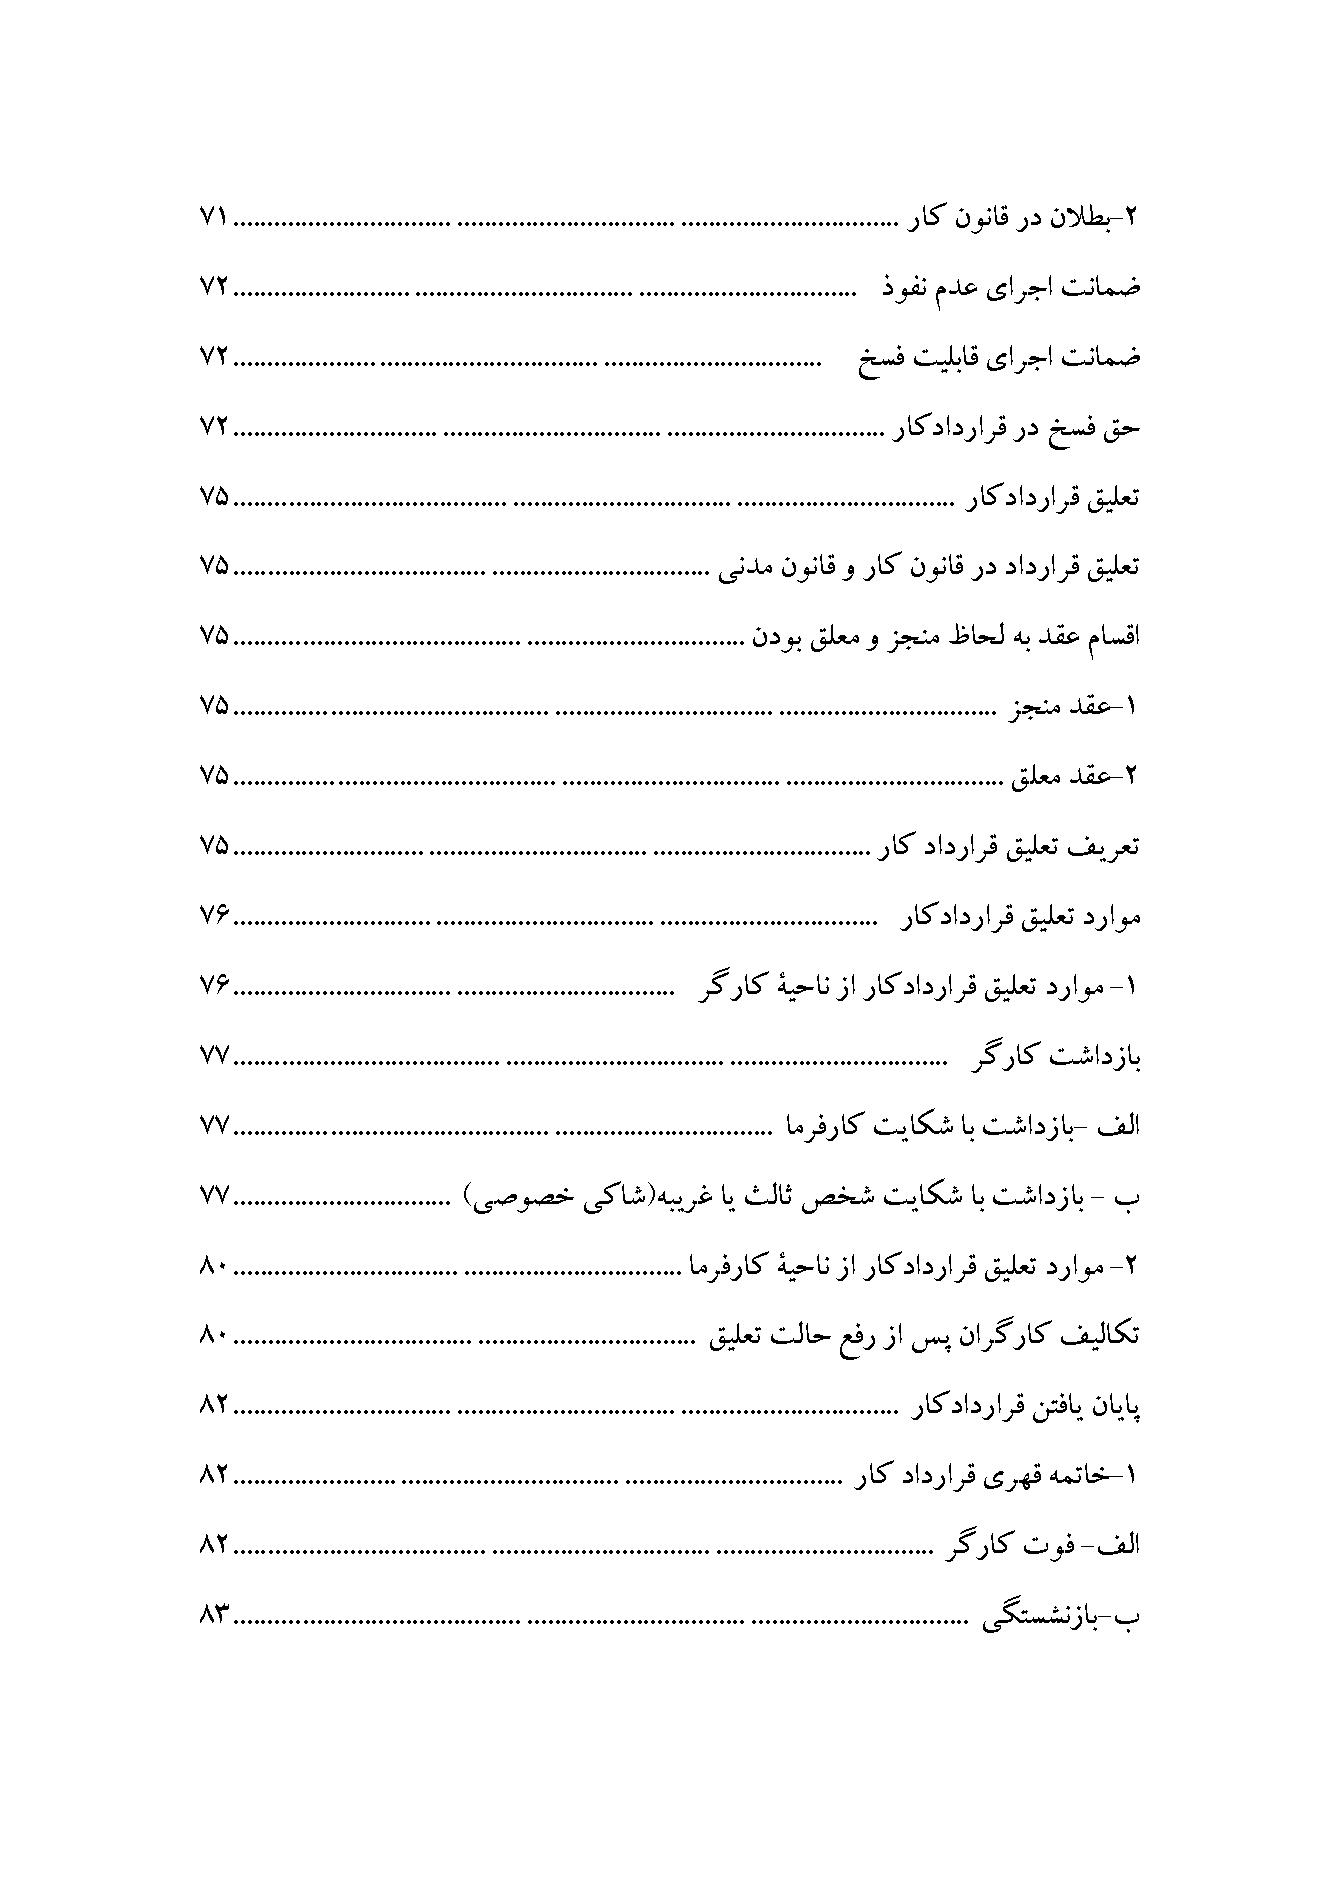 ۲-بطلان در قانون کار ................................ ................................ ................................ ۷۱
ضمانت اجرای عدم نفوذ ................................ ................................ .......................... ۷۲
ضمانت اجرای قابلیت فسخ ................................ ................................ ..................... ۷۲
حق فسخ در قراردادکار ................................ ................................ .............................. ۷۲
تعلیق قراردادکار ................................ ................................ ........................................ ۷۵
تعلیق قرارداد در قانون کار و قانون مدنی ................................ ..................................... ۷۵
اقسام عقد به لحاظ منجز و معلق بودن ................................ .......................................... ۷۵
۱-عقد منجز ................................ ................................ .............................................. ۷۵
۲-عقد معلق ................................ ................................ ............................................... ۷۵
تعریف تعلیق قرارداد کار ................................ ................................ ............................ ۷۵
موارد تعلیق قراردادکار ................................ ................................ ............................. ۷۶
۱- موارد تعلیق قراردادکار از ناحیۀ کارگر ................................ ................................ ۷۶
بازداشت کارگر ................................ ................................ ....................................... ۷۷
الف -بازداشت با شکایت کارفرما ................................ .............................................. ۷۷
ب - بازداشت با شکایت شخص ثالث یا غریبه(شاکی خصوصی) ................................ ۷۷
۲- موارد تعلیق قراردادکار از ناحیۀ کارفرما ................................ ................................. ۸۰
تکالیف کارگران پس از رفع حالت تعلیق ................................ ................................... ۸۰
پایان یافتن قراردادکار ................................ ................................ ................................ ۸۲
۱-خاتمه قهری قرارداد کار ................................ ................................ ........................ ۸۲
الف- فوت کارگر ................................ ................................ ..................................... ۸۲
ب-بازنشستگی ................................ ................................ .......................................... ۸۳